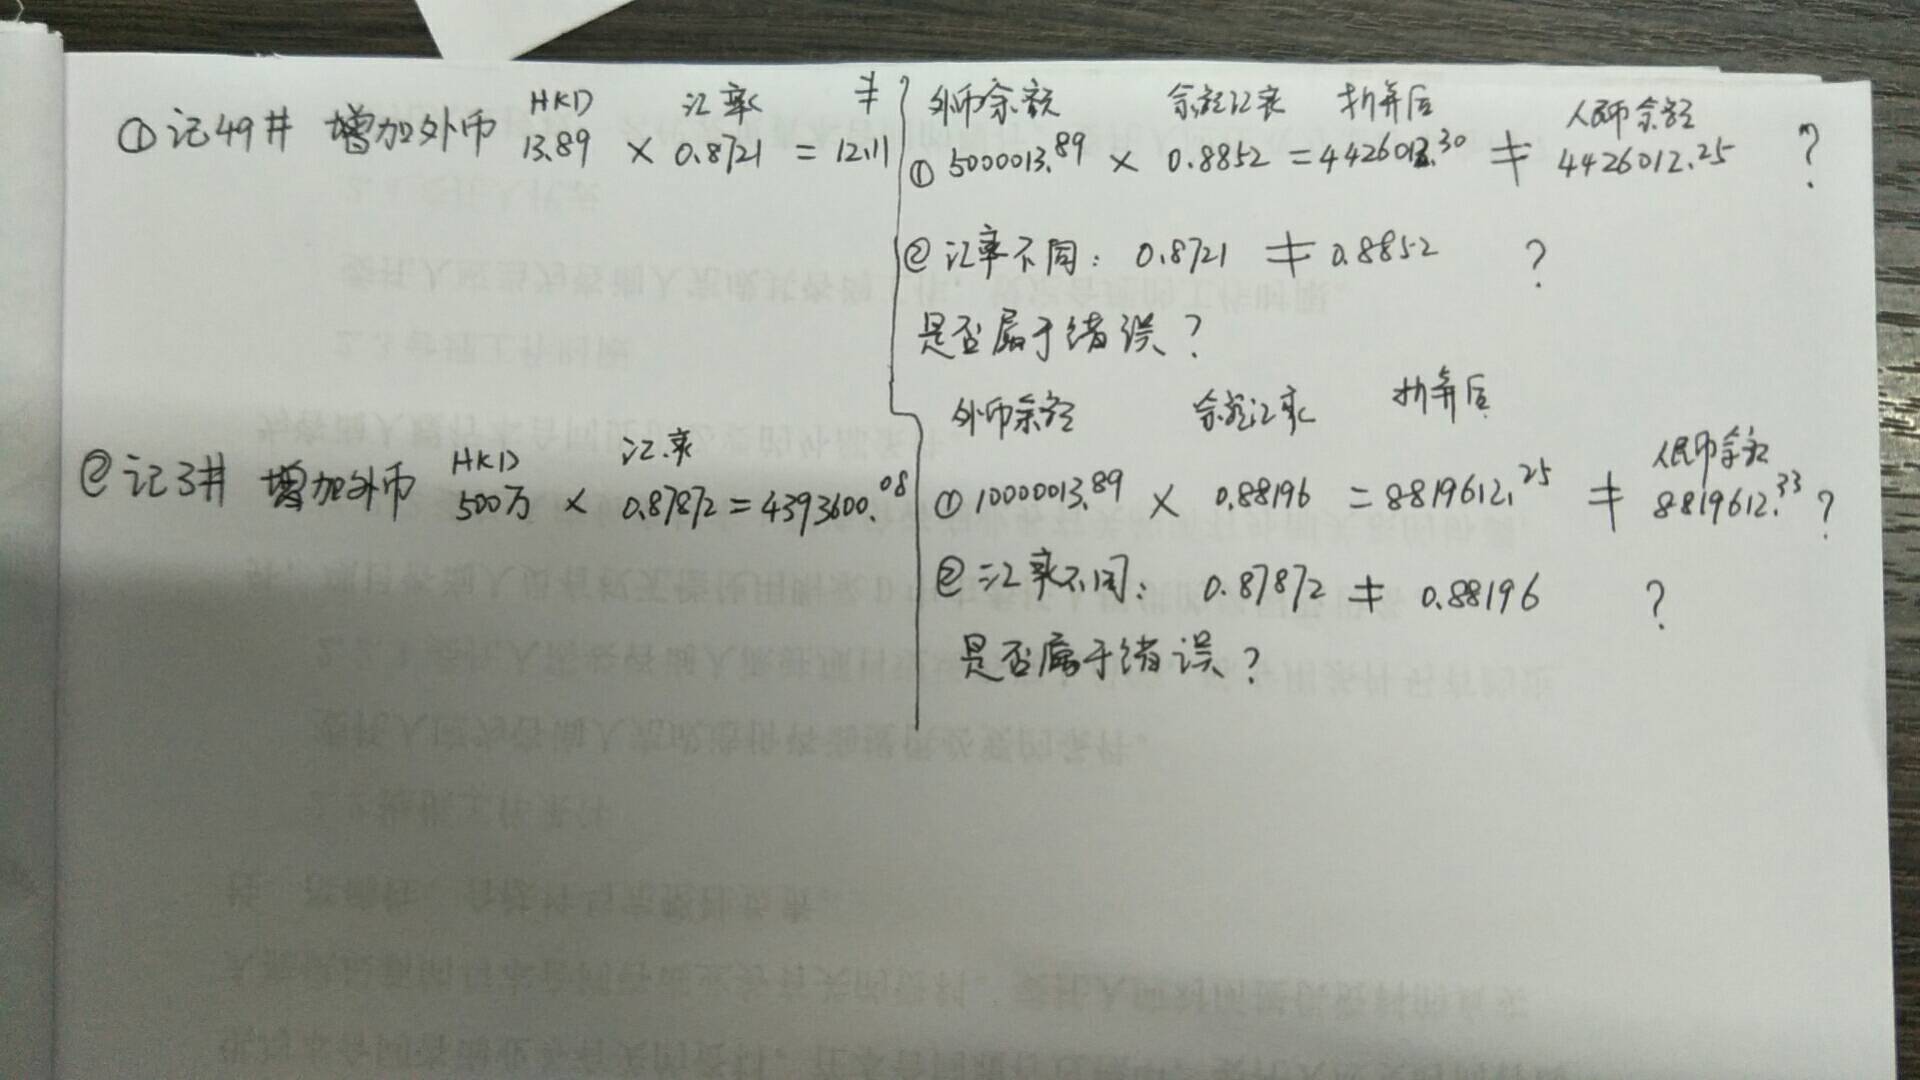 ①记49井 增加外币 HKD 13.89 × 汇率 0.8721 = 12.11 ≠
外币余额 余额汇率 折算后 人民币余额
① 5000013.89 × 0.8852 = 4426012.30 ≠ 4426012.25 ?
②汇率不同: 0.8721 ≠ 0.8852 ?
是否属于错误?
②记3井 增加外币 HKD 500万 × 汇率 0.87872 = 4393600.08
外币余额 余额汇率 折算后 人民币余额
① 10000013.89 × 0.88196 = 8819612.25 ≠ 8819612.33 ?
②汇率不同: 0.87872 ≠ 0.88196 ?
是否属于错误?